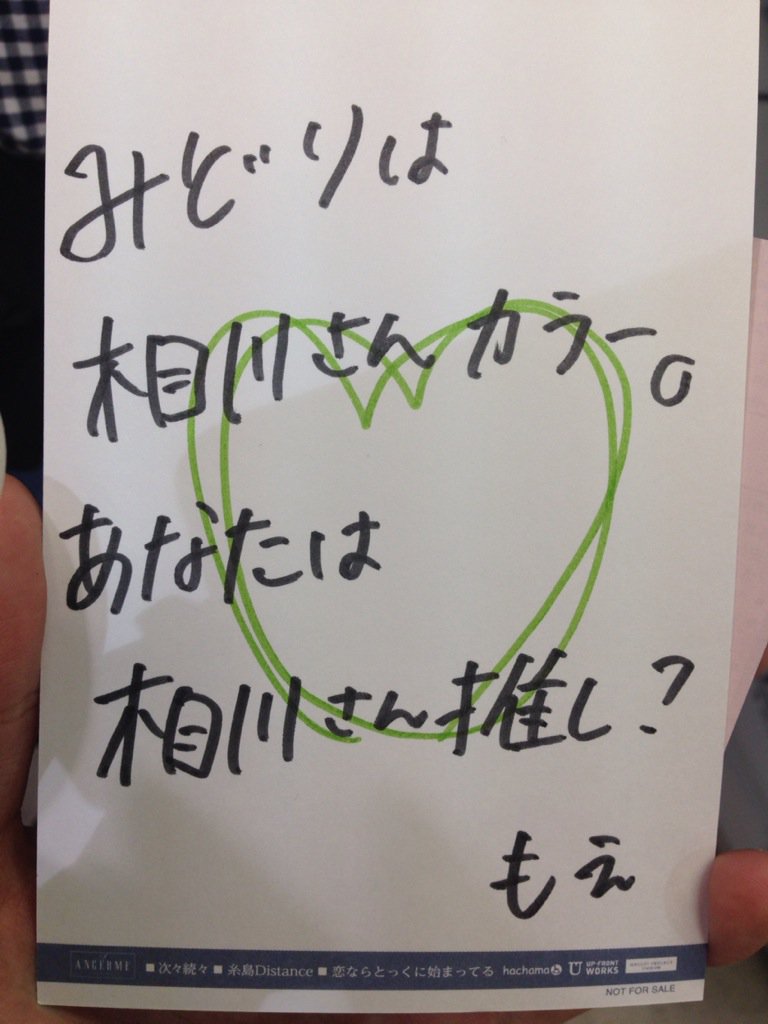 みどりは
相川さんカラー。
あなたは
相川さん推し?
もえ
ANGERME ■次々続々■糸島Distance■恋ならとっくに始まってる hachama UP-FRONT WORKS
NOT FOR SALE